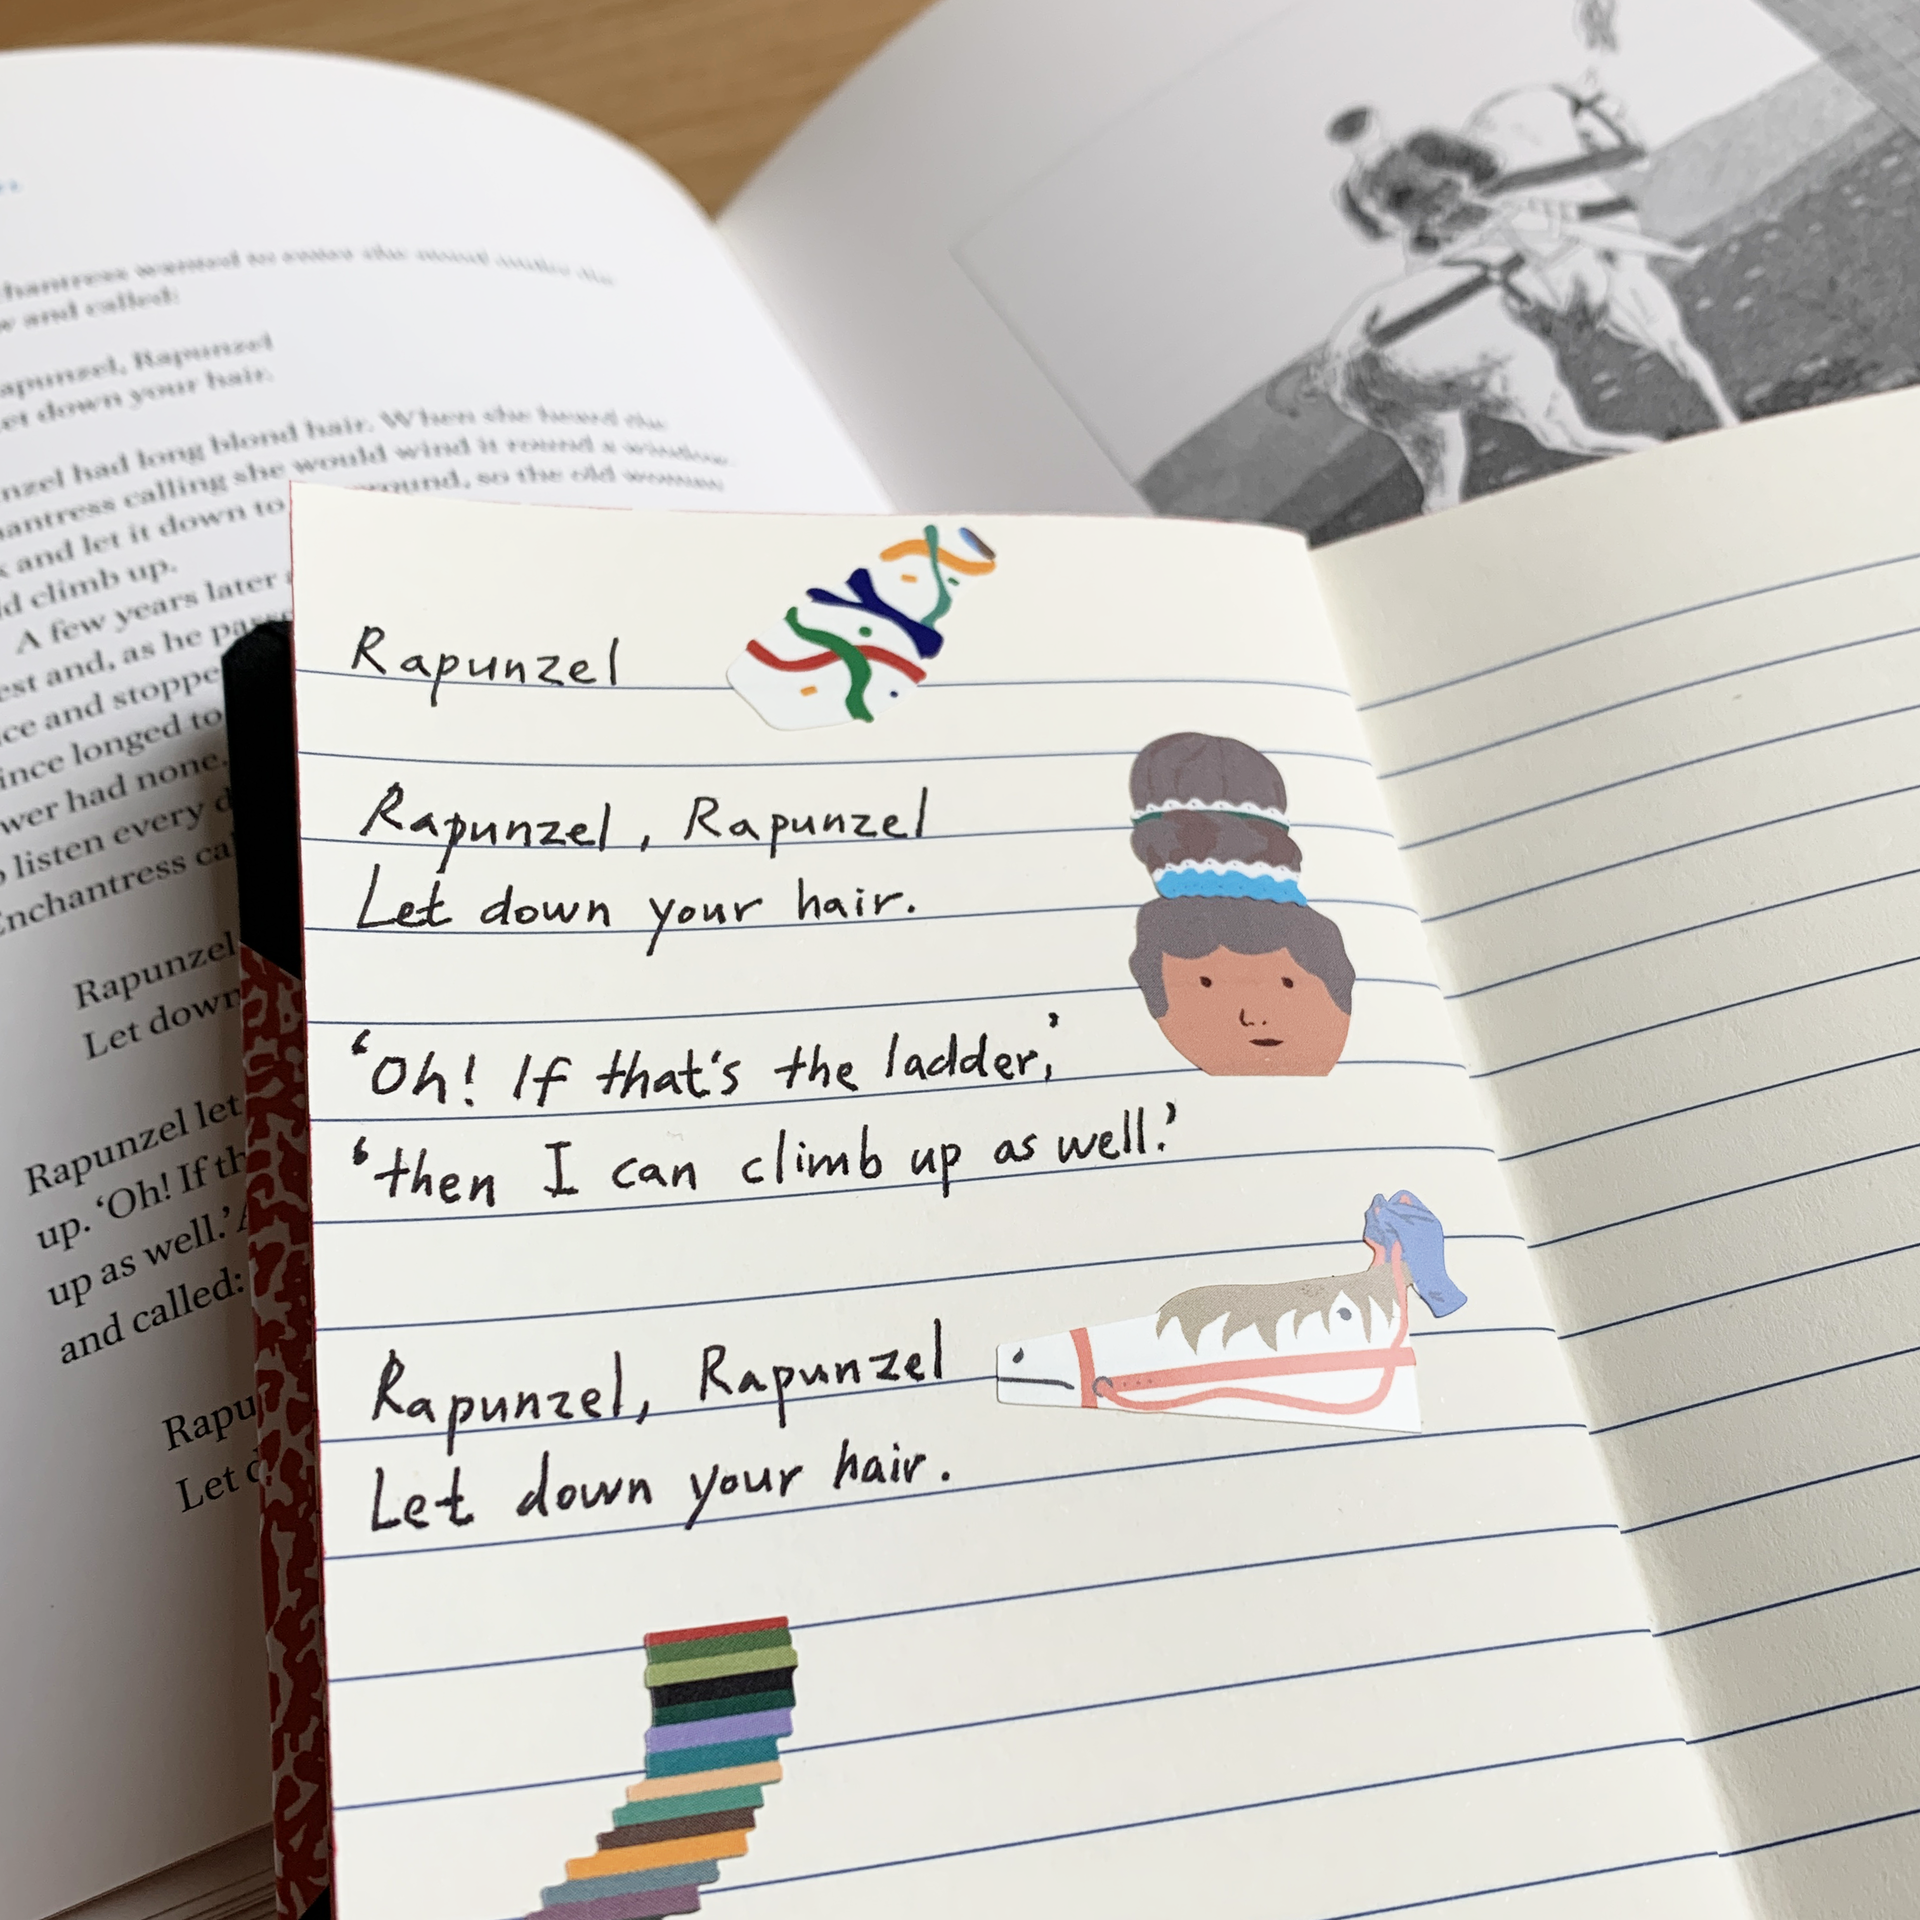 hantress wanted to enter she stood under the
w and called:
apunzel, Rapunzel
et down your hair.
nzel had long blond hair. When she heard the
antress calling she would wind it round a window
and let it down to round, so the old woman
d climb up.
A few years later
est and, as he passe
ce and stoppe
ince longed to
wer had none.
listen every d
Enchantress ca
Rapunzel
Let down
Rapunzel let
up. ‘Oh! If th
up as well.’ A
and called:
Rapu
Let d
Rapunzel
Rapunzel, Rapunzel
Let down your hair.
‘Oh! If that's the ladder,’
‘then I can climb up as well.’
Rapunzel, Rapunzel
Let down your hair.